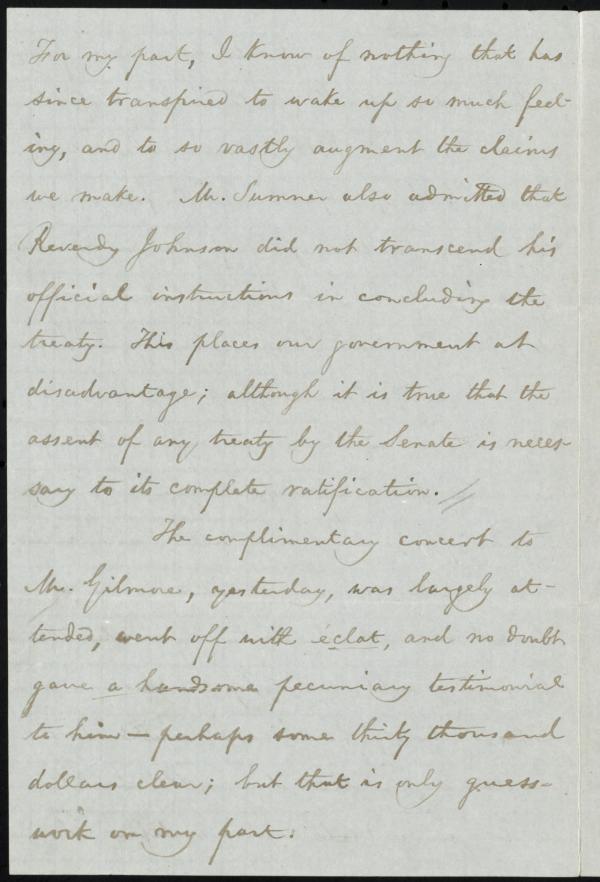 For my part, I know of nothing that has
since transpired to wake up so much feel-
ing, and to so vastly augment the claims
we make. Mr. Sumner also admitted that
Reverdy Johnson did not transcend his
official instructions in concluding the
treaty. This places our government at
disadvantage; although it is true that the
assent of any treaty by the Senate is neces-
sary to its complete ratification. //
The complimentary concert to
Mr. Gilmore, yesterday, was largely at-
tended, went off with éclat, and no doubt
gave a handsome pecuniary testimonial
to him — perhaps some thirty thousand
dollars clear; but that is only guess-
work on my part.